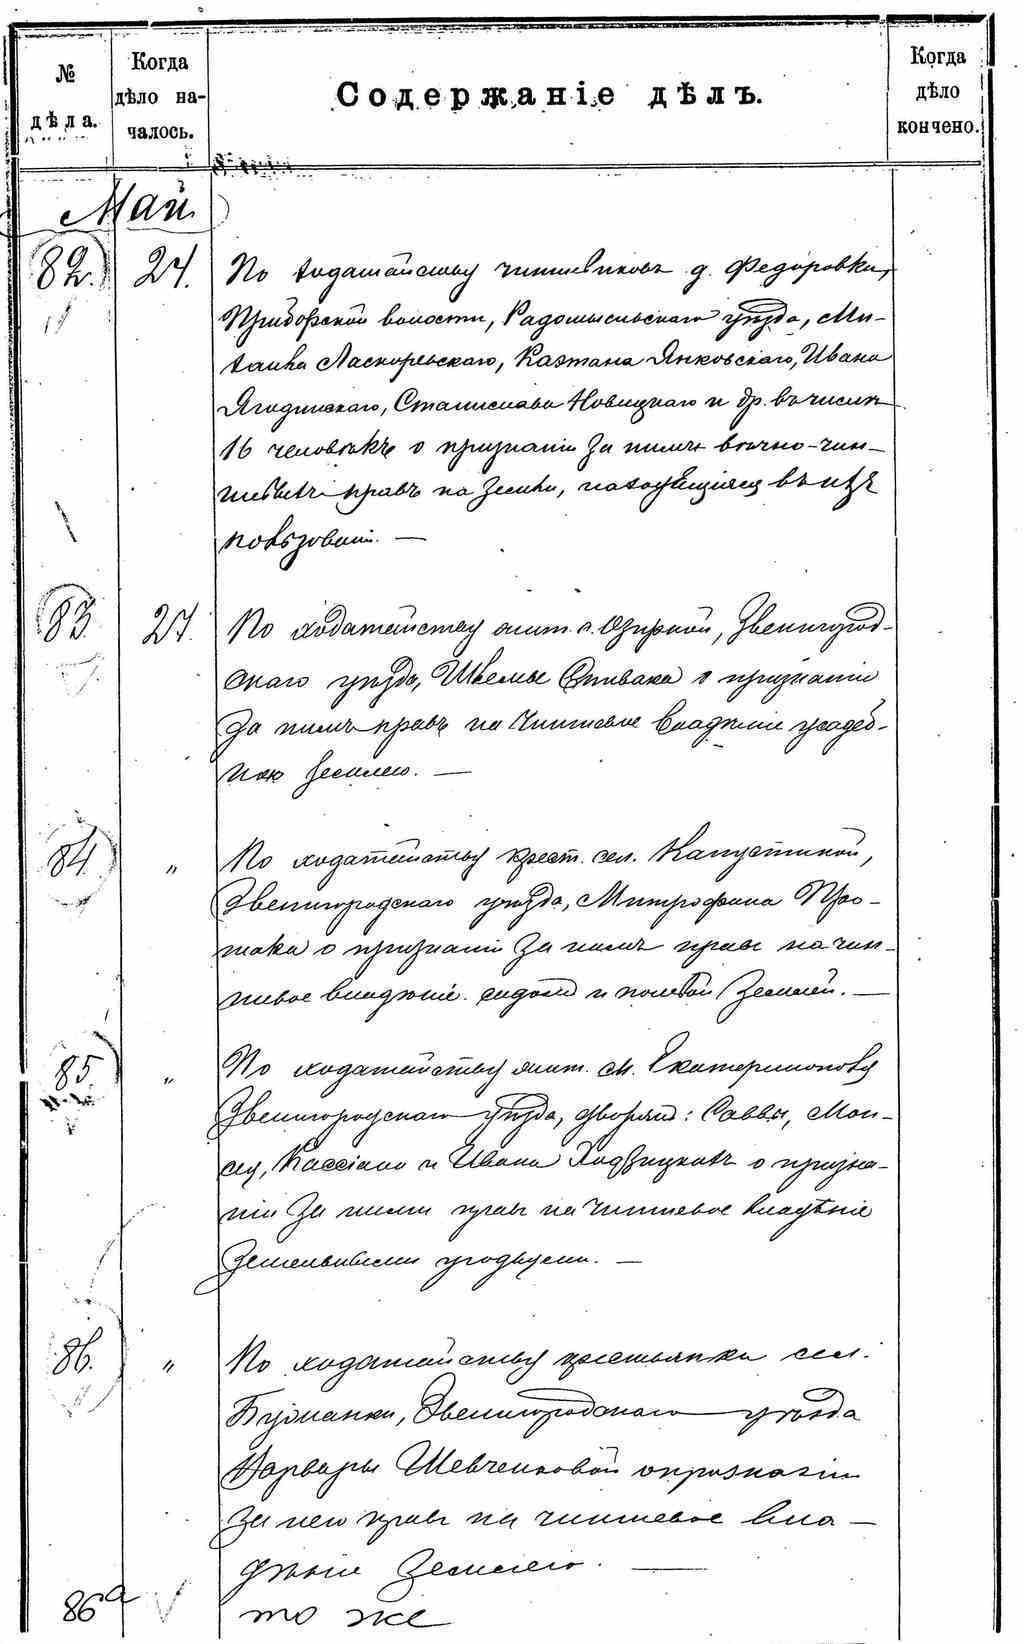 № дѣла.
Когда дѣло на-чалось.
Содержаніе дѣлъ.
Когда дѣло кончено.
Май
82. 27. По ходатайству чиншевиковъ д. Федоровки,
волости, Радомысльскаго уѣзда, Ми-
хаила Каэтана Янковскаго, Ивана
Ягодинскаго, Станислава Новицкаго и др. въ числѣ
16 человѣкъ о признаніи за ними вѣчно-чин-
шевыхъ правъ на земли, находящіяся въ ихъ
пользованіи. —
83. 27. По ходатайству жит. с. Озирной, Звенигород-
скаго уѣзда, Спивака о признаніи
за нимъ правъ на чиншевое владѣніе усадеб-
ною землею. —
84. „ По ходатайству крест. сел. Капустиной,
Звенигородскаго уѣзда, Митрофана
о признаніи за нимъ правъ на чин-
шевое владѣніе и полевой землей. —
85. „ По ходатайству жит. м. Екатеринополя
Звенигородскаго уѣзда, дворянъ: Саввы, Мои-
сея, Кассіана и Ивана о призна-
ніи за ними правъ на чиншевое владѣніе
земельными угодьями. —
86. „ По ходатайству крестьянки сел.
Звенигородскаго уѣзда
Варвары Шевченковой о признаніи
за нею правъ на чиншевое вла-
дѣніе землею. —
86а то же